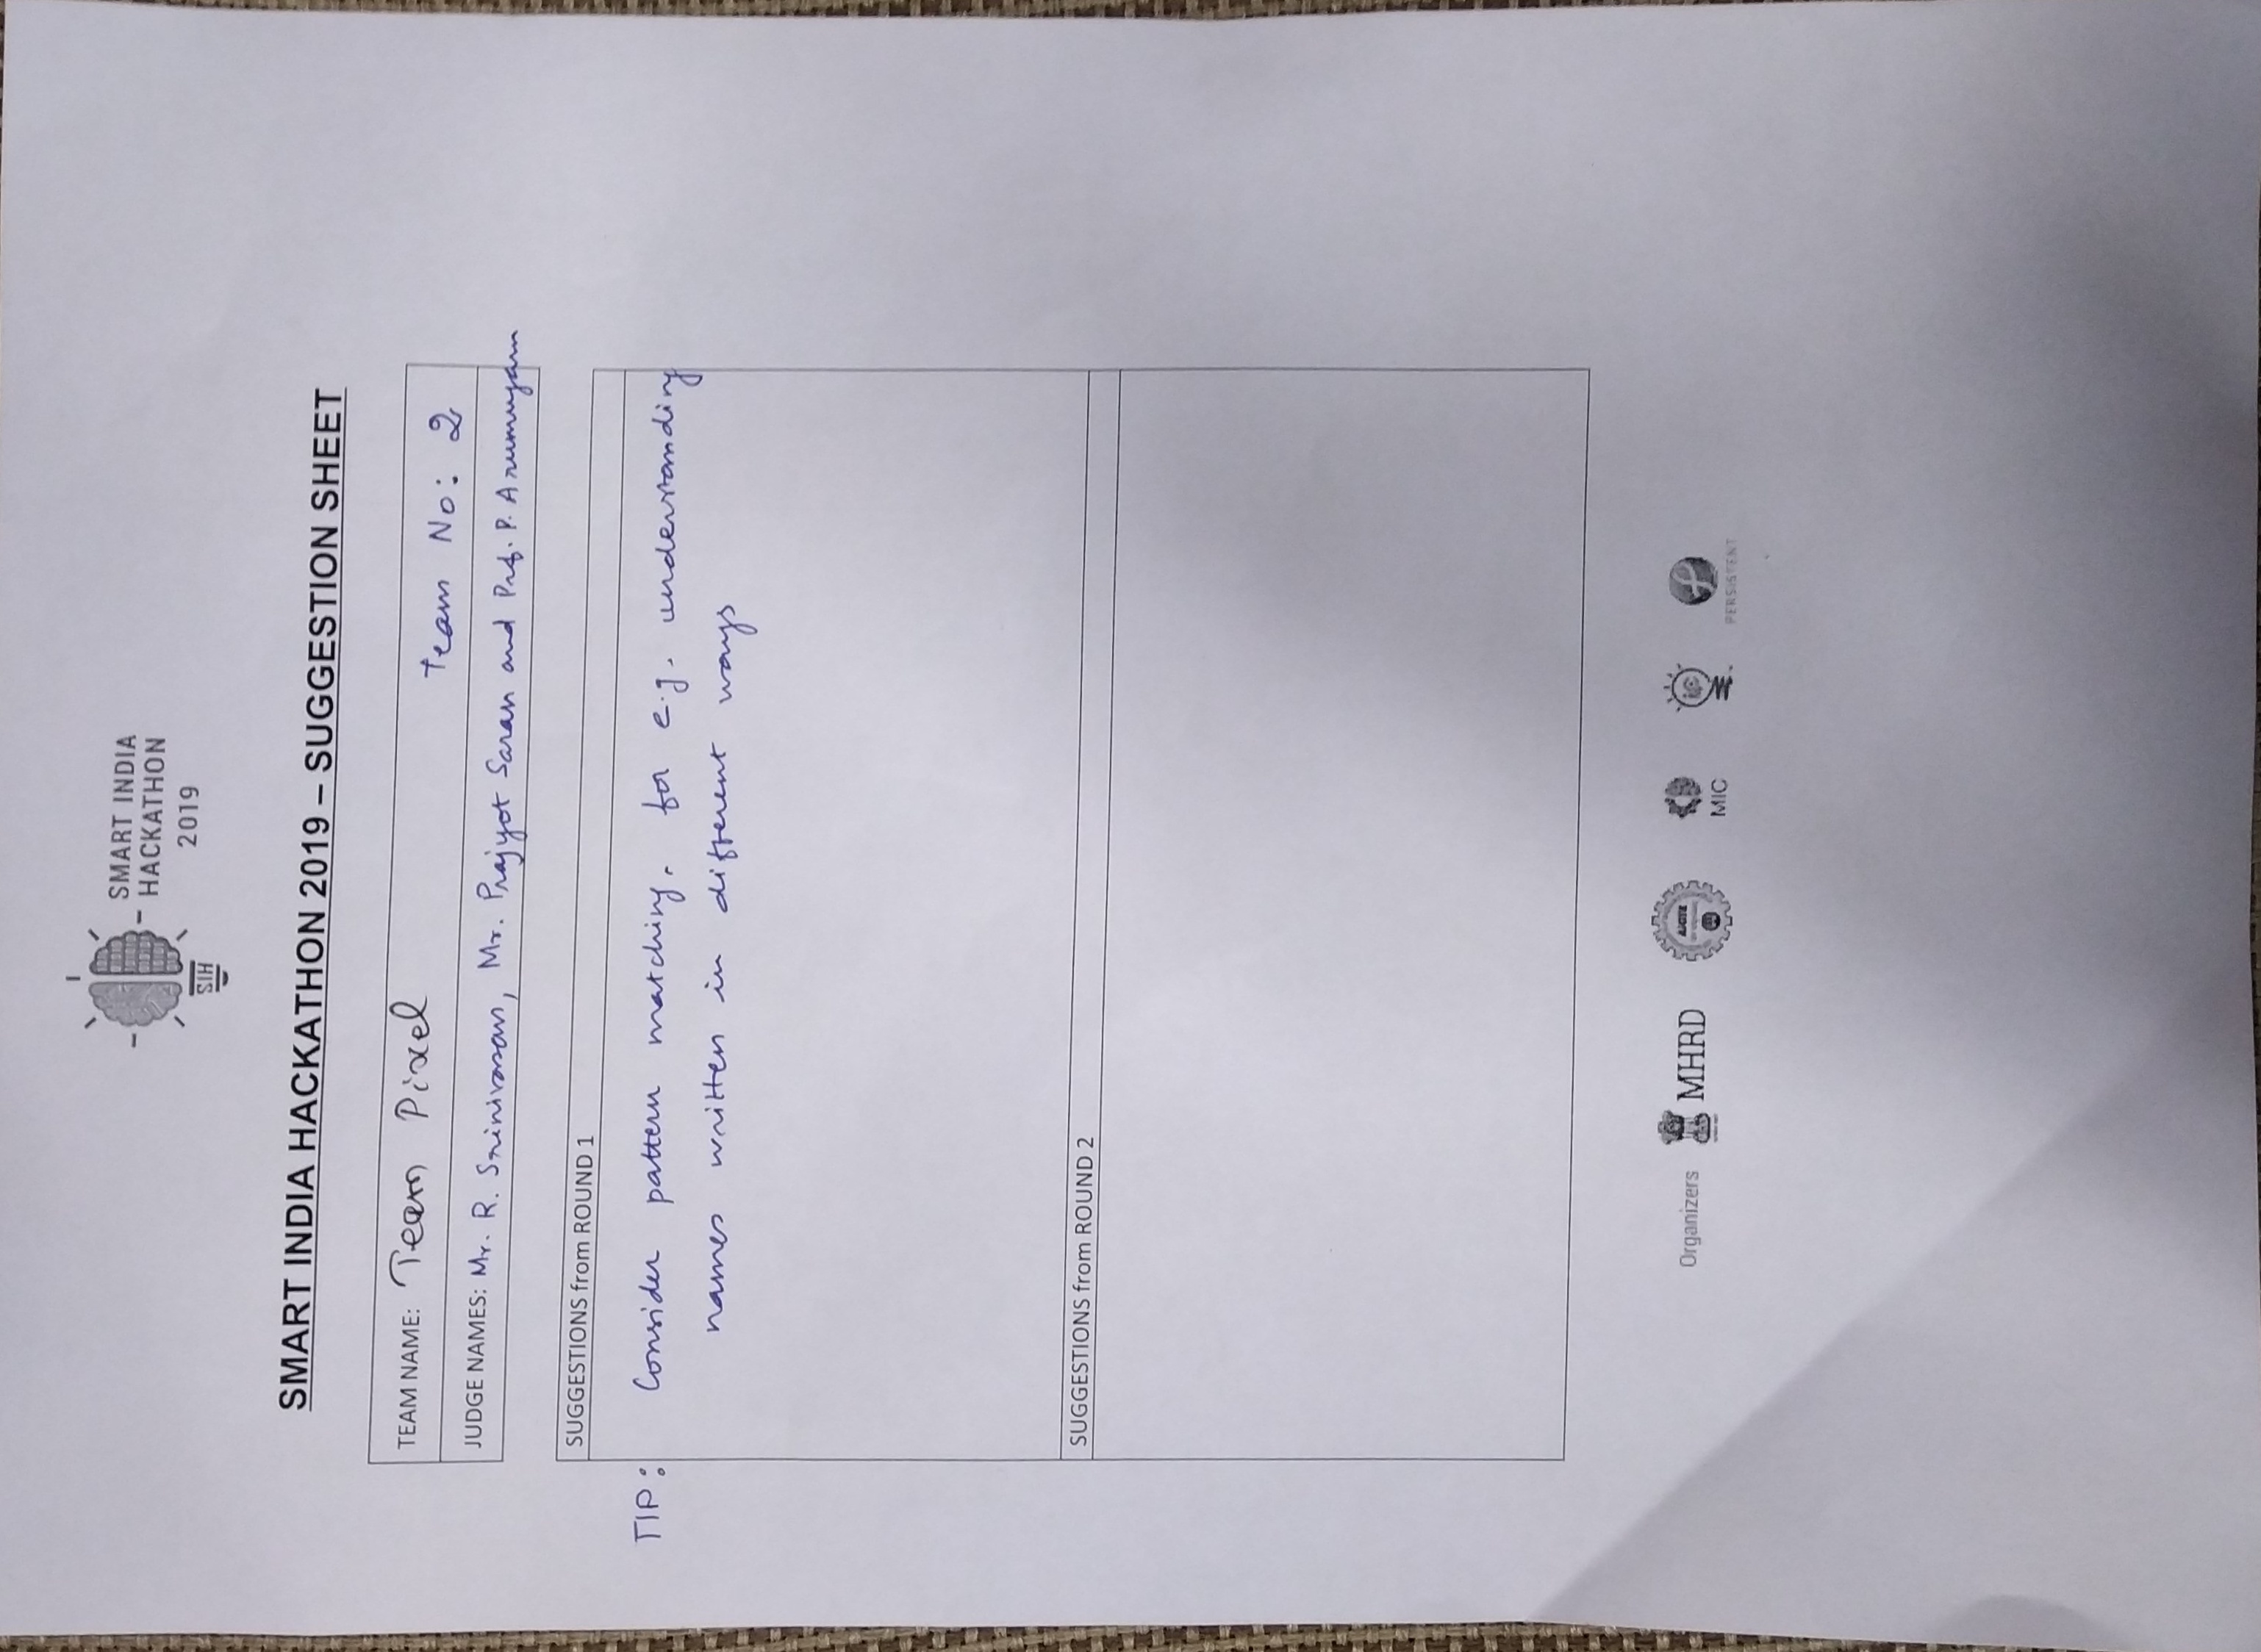 SMART INDIA
HACKATHON
2019
SIH
SMART INDIA HACKATHON 2019 – SUGGESTION SHEET
TEAM NAME: Team Pixel Team No: 2
JUDGE NAMES: Mr. R. Srinivasan, Mr. Prajyot Saran and Prof. P. Arumugam
SUGGESTIONS from ROUND 1
TIP: Consider pattern matching. for e.g. understanding
names written in different ways
SUGGESTIONS from ROUND 2
Organizers MHRD MIC PERSISTENT